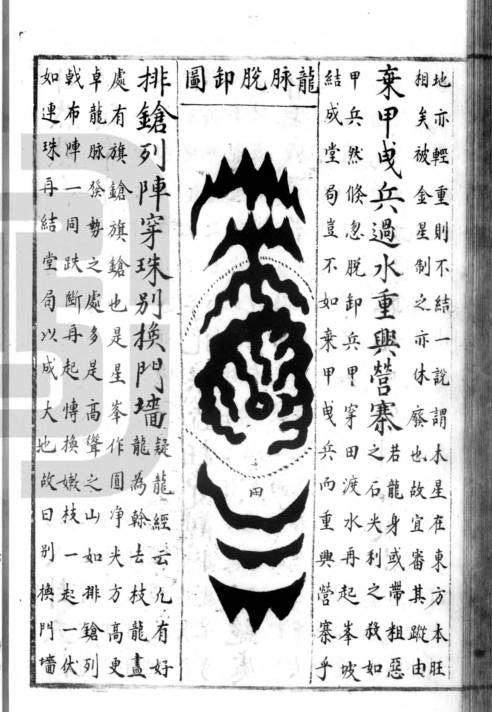 地亦輕重則不結一說謂木星在東方本旺
相矣被金星制之亦休廢也故宜審其蹤由
棄甲曳兵過水重興營寨
若龍身或帶粗惡
之石尖利之殺如
甲兵然倏忽脫卸兵甲穿田渡水再起峯坡
結成堂局豈不如棄甲曳兵而重興營寨乎
龍脉脫卸圖
田
排鎗列陣穿珠別換門墻
疑龍經云凡有好
龍為幹去枝龍盡
處有旗鎗旗鎗也是星峯作圓净尖方高更
卓龍脉發勢之處多是高聳之山如排鎗列
戟布陣一同跌斷再起愽換嫩枝一起一伏
如連珠再結堂局以成大地故曰別換門墻